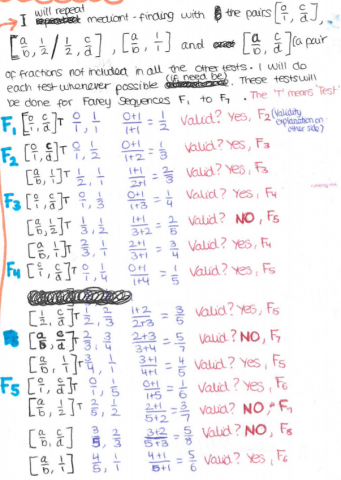 will repeat
→ I mediant-finding with the pairs [0/1, c/d],
[a/b, 1/2 / 1/2, c/d], [a/b, 1/1] and [a/b, c/d] (a pair
of fractions not included in all the other tests. I will do
each test whenever possible (if need be). These tests will
be done for Farey Sequences F₁ to F₇. The 'T' means 'Test'
F₁ [0/1, c/d]T 0/1, 1/1 0+1/1+1 = 1/2 Valid? Yes, F₂ (Validity explanation on other side)
F₂ [0/1, c/d]T 0/1, 1/2 0+1/1+2 = 1/3 Valid? Yes, F₃
[a/b, 1/1]T 1/2, 1/1 1+1/2+1 = 2/3 Valid? Yes, F₃
F₃ [0/1, c/d]T 0/1, 1/3 0+1/1+3 = 1/4 Valid? Yes, F₄
[a/b, 1/2]T 1/3, 1/2 1+1/3+2 = 2/5 Valid? NO, F₅
[a/b, 1/1]T 2/3, 1/1 2+1/3+1 = 3/4 Valid? Yes, F₄
F₄ [0/1, c/d]T 0/1, 1/4 0+1/1+4 = 1/5 Valid? Yes, F₅
[1/2, c/d]T 1/2, 2/3 1+2/2+3 = 3/5 Valid? Yes, F₅
[a/b, c/d]T 2/3, 3/4 2+3/3+4 = 5/7 Valid? NO, F₇
[a/b, 1/1]T 3/4, 1/1 3+1/4+1 = 4/5 Valid? Yes, F₅
F₅ [0/1, c/d]T 0/1, 1/5 0+1/1+5 = 1/6 Valid? Yes, F₆
[a/b, 1/2]T 2/5, 1/2 2+1/5+2 = 3/7 Valid? NO, F₇
[a/b, c/d] 3/5, 2/3 3+2/5+3 = 5/8 Valid? NO, F₈
[a/b, 1/1] 4/5, 1/1 4+1/5+1 = 5/6 Valid? Yes, F₆